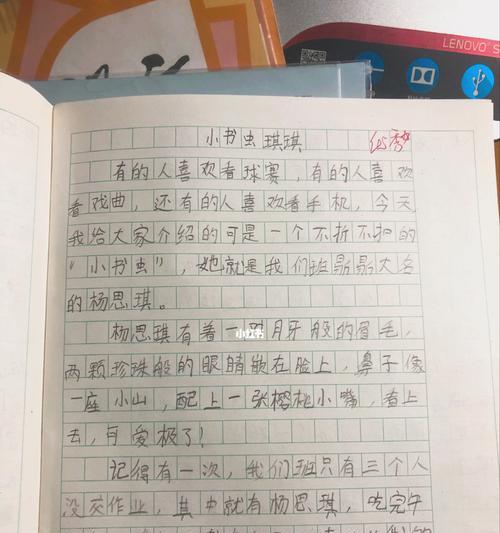 LENOVO S
小书虫琪琪
优秀
有的人喜欢看球赛，有的人喜欢
看戏曲，还有的人喜欢看手机，今天
我给大家介绍的可是一个不折不扣的
“小书虫”，她就是我们班鼎鼎大名
的杨思琪。
小红书
杨思琪有着一对月牙般的眉毛，
两颗珍珠般的眼睛嵌在脸上，鼻子像
一座小山，配上一张樱桃小嘴，看上
去，可爱极了！
记得有一次，我们班只有三个人
没交作业，其中就有杨思琪，吃完午